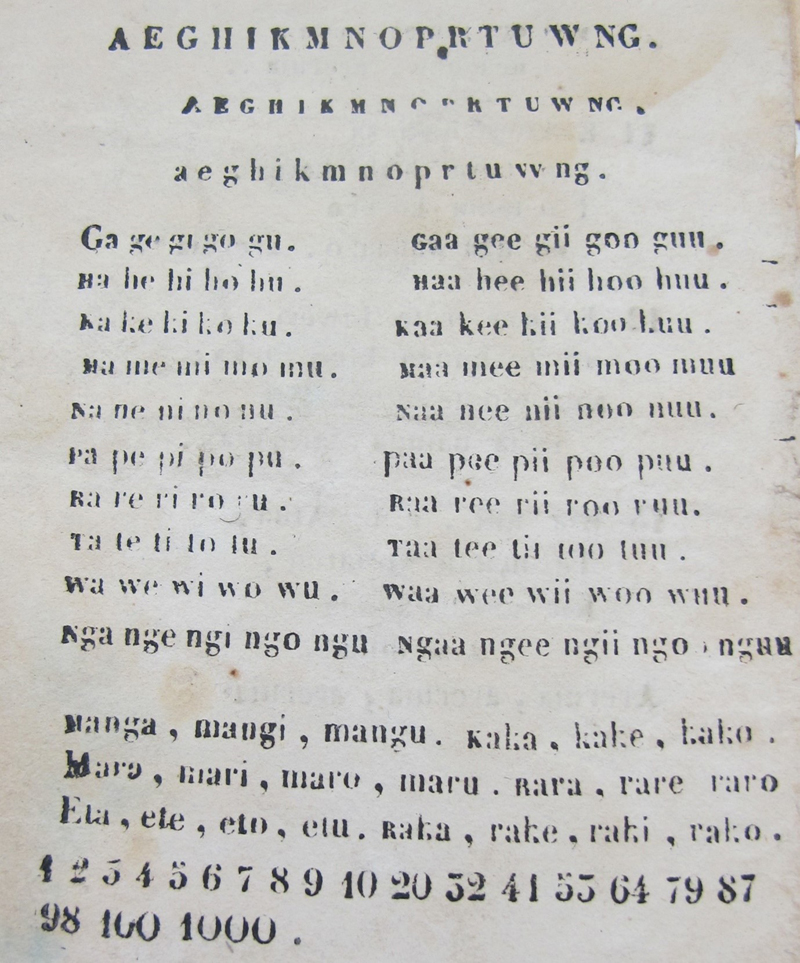 A E G H I K M N O P R T U W NG.
A E G H I K M N O P R T U W NG.
a e g h i k m n o p r t u w ng.
Ga ge gi go gu. Gaa gee gii goo guu.
Ha he hi ho hu. Haa hee hii hoo huu.
Ka ke ki ko ku. Kaa kee kii koo kuu.
Ma me mi mo mu. Maa mee mii moo muu
Na ne ni no nu. Naa nee nii noo nuu.
Pa pe pi po pu. paa pee pii poo puu.
Ra re ri ro ru. Raa ree rii roo ruu.
Ta te ti to tu. Taa tee tii too tuu.
Wa we wi wo wu. Waa wee wii woo wuu.
Nga nge ngi ngo ngu Ngaa ngee ngii ngo nguu
Manga, mangi, mangu. Kaka, kake, kako.
Mara, mari, maro, maru. Rara, rare raro
Eta, ete, eto, etu. Raka, rake, raki, rako.
1 2 3 4 5 6 7 8 9 10 20 32 41 53 64 79 87
98 100 1000.